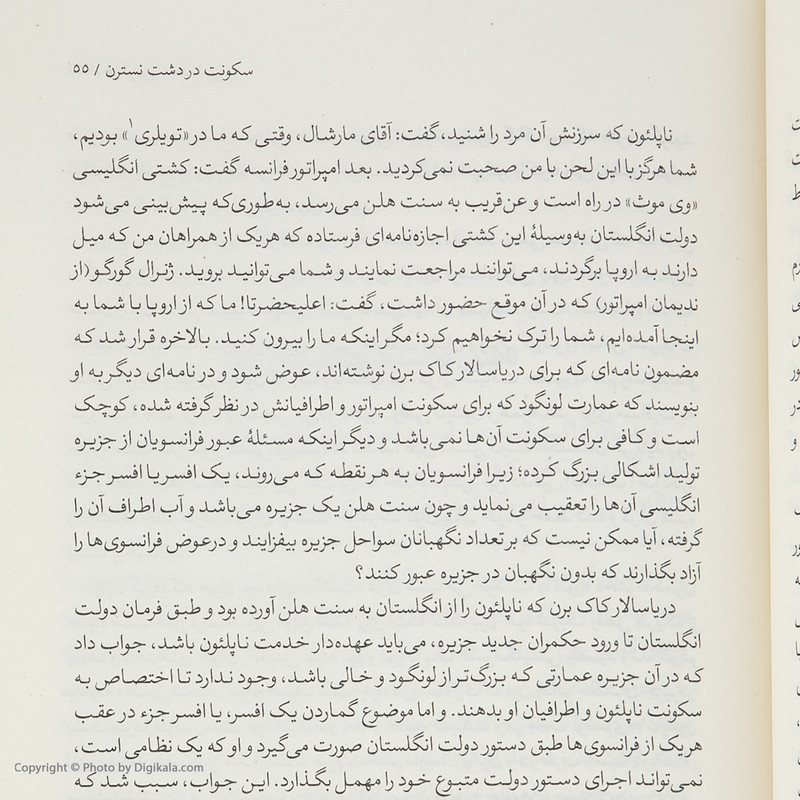 سکونت در دشت نسترن / ۵۵
ناپلئون که سرزنش آن مرد را شنید، گفت: آقای مارشال، وقتی که ما در «تویلری۱» بودیم،
شما هرگز با این لحن با من صحبت نمی‌کردید. بعد امپراتور فرانسه گفت: کشتی انگلیسی
«وی موث» در راه است و عن‌قریب به سنت هلن می‌رسد، به‌طوری‌که پیش‌بینی می‌شود
دولت انگلستان به‌وسیلهٔ این کشتی اجازه‌نامه‌ای فرستاده که هریک از همراهان من که میل
دارند به اروپا برگردند، می‌توانند مراجعت نمایند و شما می‌توانید بروید. ژنرال گورگو (از
ندیمان امپراتور) که در آن موقع حضور داشت، گفت: اعلیحضرتا! ما که از اروپا با شما به
اینجا آمده‌ایم، شما را ترک نخواهیم کرد؛ مگر اینکه ما را بیرون کنید. بالاخره قرار شد که
مضمون نامه‌ای که برای دریاسالار کاک برن نوشته‌اند، عوض شود و در نامه‌ای دیگر به او
بنویسند که عمارت لونگود که برای سکونت امپراتور و اطرافیانش در نظر گرفته شده، کوچک
است و کافی برای سکونت آن‌ها نمی‌باشد و دیگر اینکه مسئلهٔ عبور فرانسویان از جزیره
تولید اشکالی بزرگ کرده؛ زیرا فرانسویان به هر نقطه که می‌روند، یک افسر یا افسر جزء
انگلیسی آن‌ها را تعقیب می‌نماید و چون سنت هلن یک جزیره می‌باشد و آب اطراف آن را
گرفته، آیا ممکن نیست که بر تعداد نگهبانان سواحل جزیره بیفزایند و درعوض فرانسوی‌ها را
آزاد بگذارند که بدون نگهبان در جزیره عبور کنند؟
دریاسالار کاک برن که ناپلئون را از انگلستان به سنت هلن آورده بود و طبق فرمان دولت
انگلستان تا ورود حکمران جدید جزیره، می‌باید عهده‌دار خدمت ناپلئون باشد، جواب داد
که در آن جزیره عمارتی که بزرگ‌تر از لونگود و خالی باشد، وجود ندارد تا اختصاص به
سکونت ناپلئون و اطرافیان او بدهند. و اما موضوع گماردن یک افسر، یا افسر جزء در عقب
هریک از فرانسوی‌ها طبق دستور دولت انگلستان صورت می‌گیرد و او که یک نظامی است،
نمی‌تواند اجرای دستور دولت متبوع خود را مهمل بگذارد. این جواب، سبب شد که
Copyright © Photo by Digikala.com